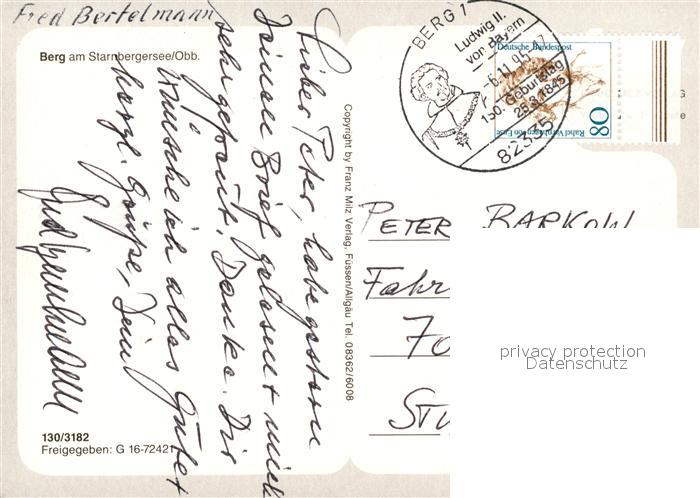 Fred Bertelmann
Berg am Starnbergersee/Obb.
Lieber Peter, habe gestern
Deinen Brief gelesen + mich
sehr gefreut. Danke. Dir
wünsche ich alles Gute +
herzl. Grüße, Dein
Fred Bertelmann
130/3182
Freigegeben: G 16-72421
Copyright by Franz Milz Verlag, Füssen/Allgäu Tel. 08362/6008
BERG 1
Ludwig II.
von Bayern
-6.11.95-17
150. Geburtstag
25.8.1845
82335
Deutsche Bundespost
80
Rahel Varnhagen von Ense
PETER BARKOW
Fahr
70
STU
privacy protection
Datenschutz